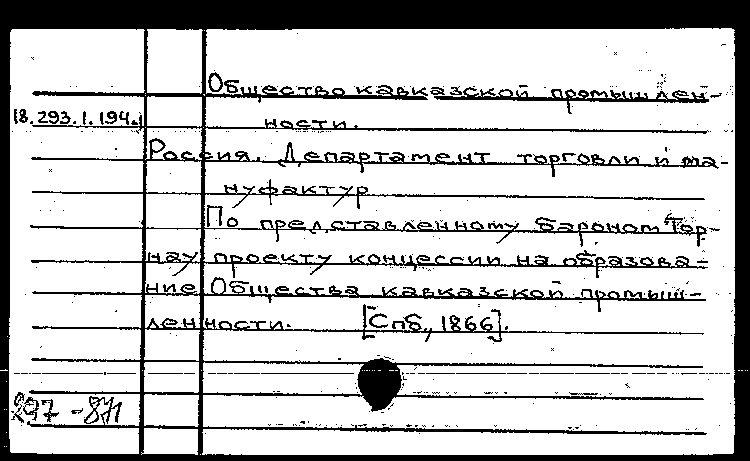 Общество кавказской промышлен-
ности.
18.293.1.194.
Россия. Департамент торговли и ма-
нуфактур
По представленному бароном Тор-
нау проекту концессии на образова-
ние Общества кавказской промыш-
ленности. [Спб., 1866].
297-871